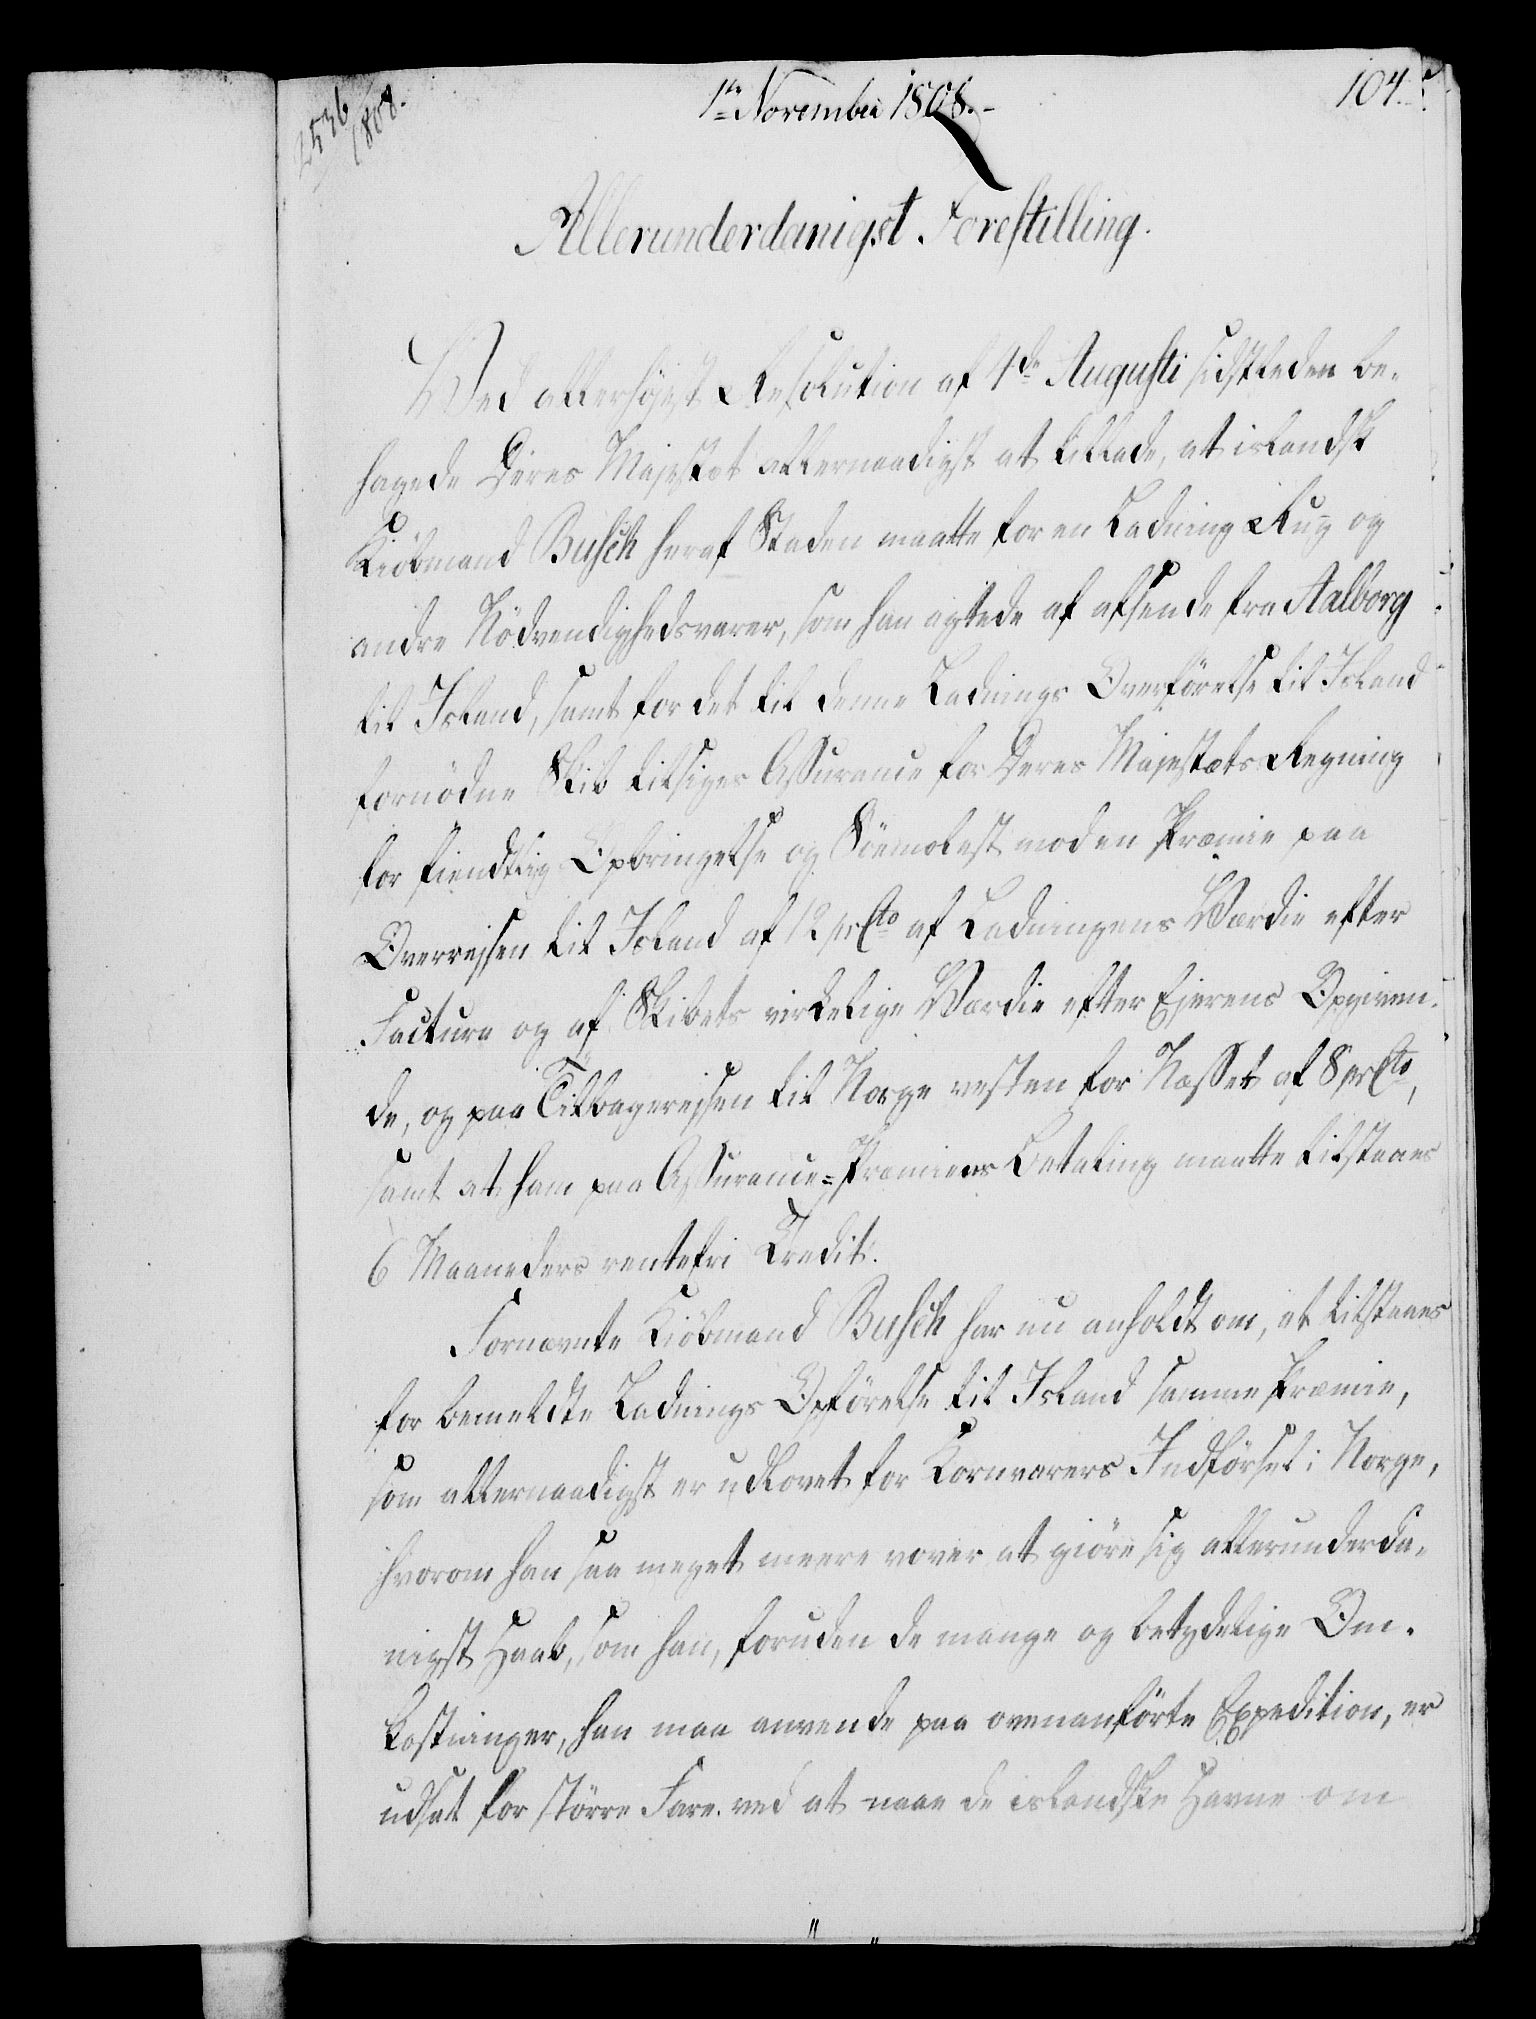 2536
1808.
1ste November 1808.
104.
Allerunderdanigst Forestilling.
Ved allerhöjest Resolution af 4de Augusti sidstleden be-
hagede Deres Majestæt allernaadigst at tillade, at islandsk
Kiöbmand Busch heraf Staden maatte for en Ladning Rug og
andre Nödvendighedsvarer, som han agtede at afsende fra Aalborg
til Island, samt for det til denne Ladnings Overförelse til Island
fornödne Skib tilsiges Assurance for Deres Majestæts Regning
for fiendtlig Opbringelse og Söemolest mod en Præmie paa
Overreisen til Island af 12 prCto af Ladningens Værdie efter
Factura og af Skibets virkelige Værdie efter Ejerens Opgiven-
de, og paa Tilbagereisen til Norge vesten for Næsset af 8 prCto,
samt at ham paa Assurance-Præmiens Betaling maatte tilstaaes
6 Maaneders rentefri Credit.
Fornævnte Kiöbmand Busch har nu anholdt om, at tilstaaes
for bemeldte Ladnings Opförelse til Island samme Præmie,
som allernaadigst er udlovet for Kornvarers Indförsel i Norge,
hvorom han saa meget meere vover at giöre sig allerunderda-
nigst Haab, som han, foruden de mange og betydelige Om-
kostninger, han maa anvende paa ovenanförte Expedition, er
udsat for större Fare ved at naae de islandske Havne om